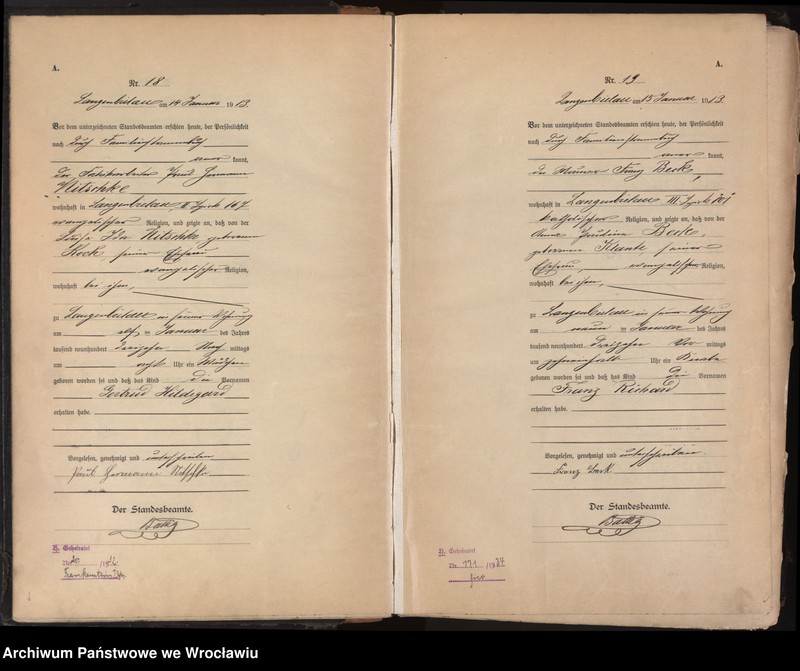 A.
Nr. 18
Langenbielau am 14 Januar 1913.
Vor dem unterzeichneten Standesbeamten erschien heute, der Persönlichkeit
nach durch Familienstammbuch
kannt,
der Fabrikarbeiter Paul Hermann
Nitschke
wohnhaft in Langenbielau
evangelischer Religion, und zeigte an, daß von der
Ida Nitschke geborenen
Koch, seiner Ehefrau
evangelischer Religion,
wohnhaft bei ihm,
zu Langenbielau in seiner Wohnung
am elf ten Januar des Jahres
tausend neunhundert dreizehn Nach mittags
um acht Uhr ein Mädchen
geboren worden sei und daß das Kind die Vornamen
Gertrud Hildegard
erhalten habe.
Vorgelesen, genehmigt und unterschrieben
Paul Hermann Nitschke
Der Standesbeamte.
A.
Nr. 19
Langenbielau am 15 Januar 1913.
Vor dem unterzeichneten Standesbeamten erschien heute, der Persönlichkeit
nach durch Familienstammbuch
kannt,
der Franz Beck,
wohnhaft in Langenbielau III
katholischer Religion, und zeigte an, daß von der
Anna Pauline Beck,
geborenen seiner
Ehefrau, evangelischer Religion,
wohnhaft bei ihm,
zu Langenbielau in seiner Wohnung
am neun ten Januar des Jahres
tausend neunhundert dreizehn Vor mittags
um Uhr ein Knabe
geboren worden sei und daß das Kind die Vornamen
Franz Richard
erhalten habe.
Vorgelesen, genehmigt und unterschrieben
Franz Beck
Der Standesbeamte.
Nr. 171
Archiwum Państwowe we Wrocławiu